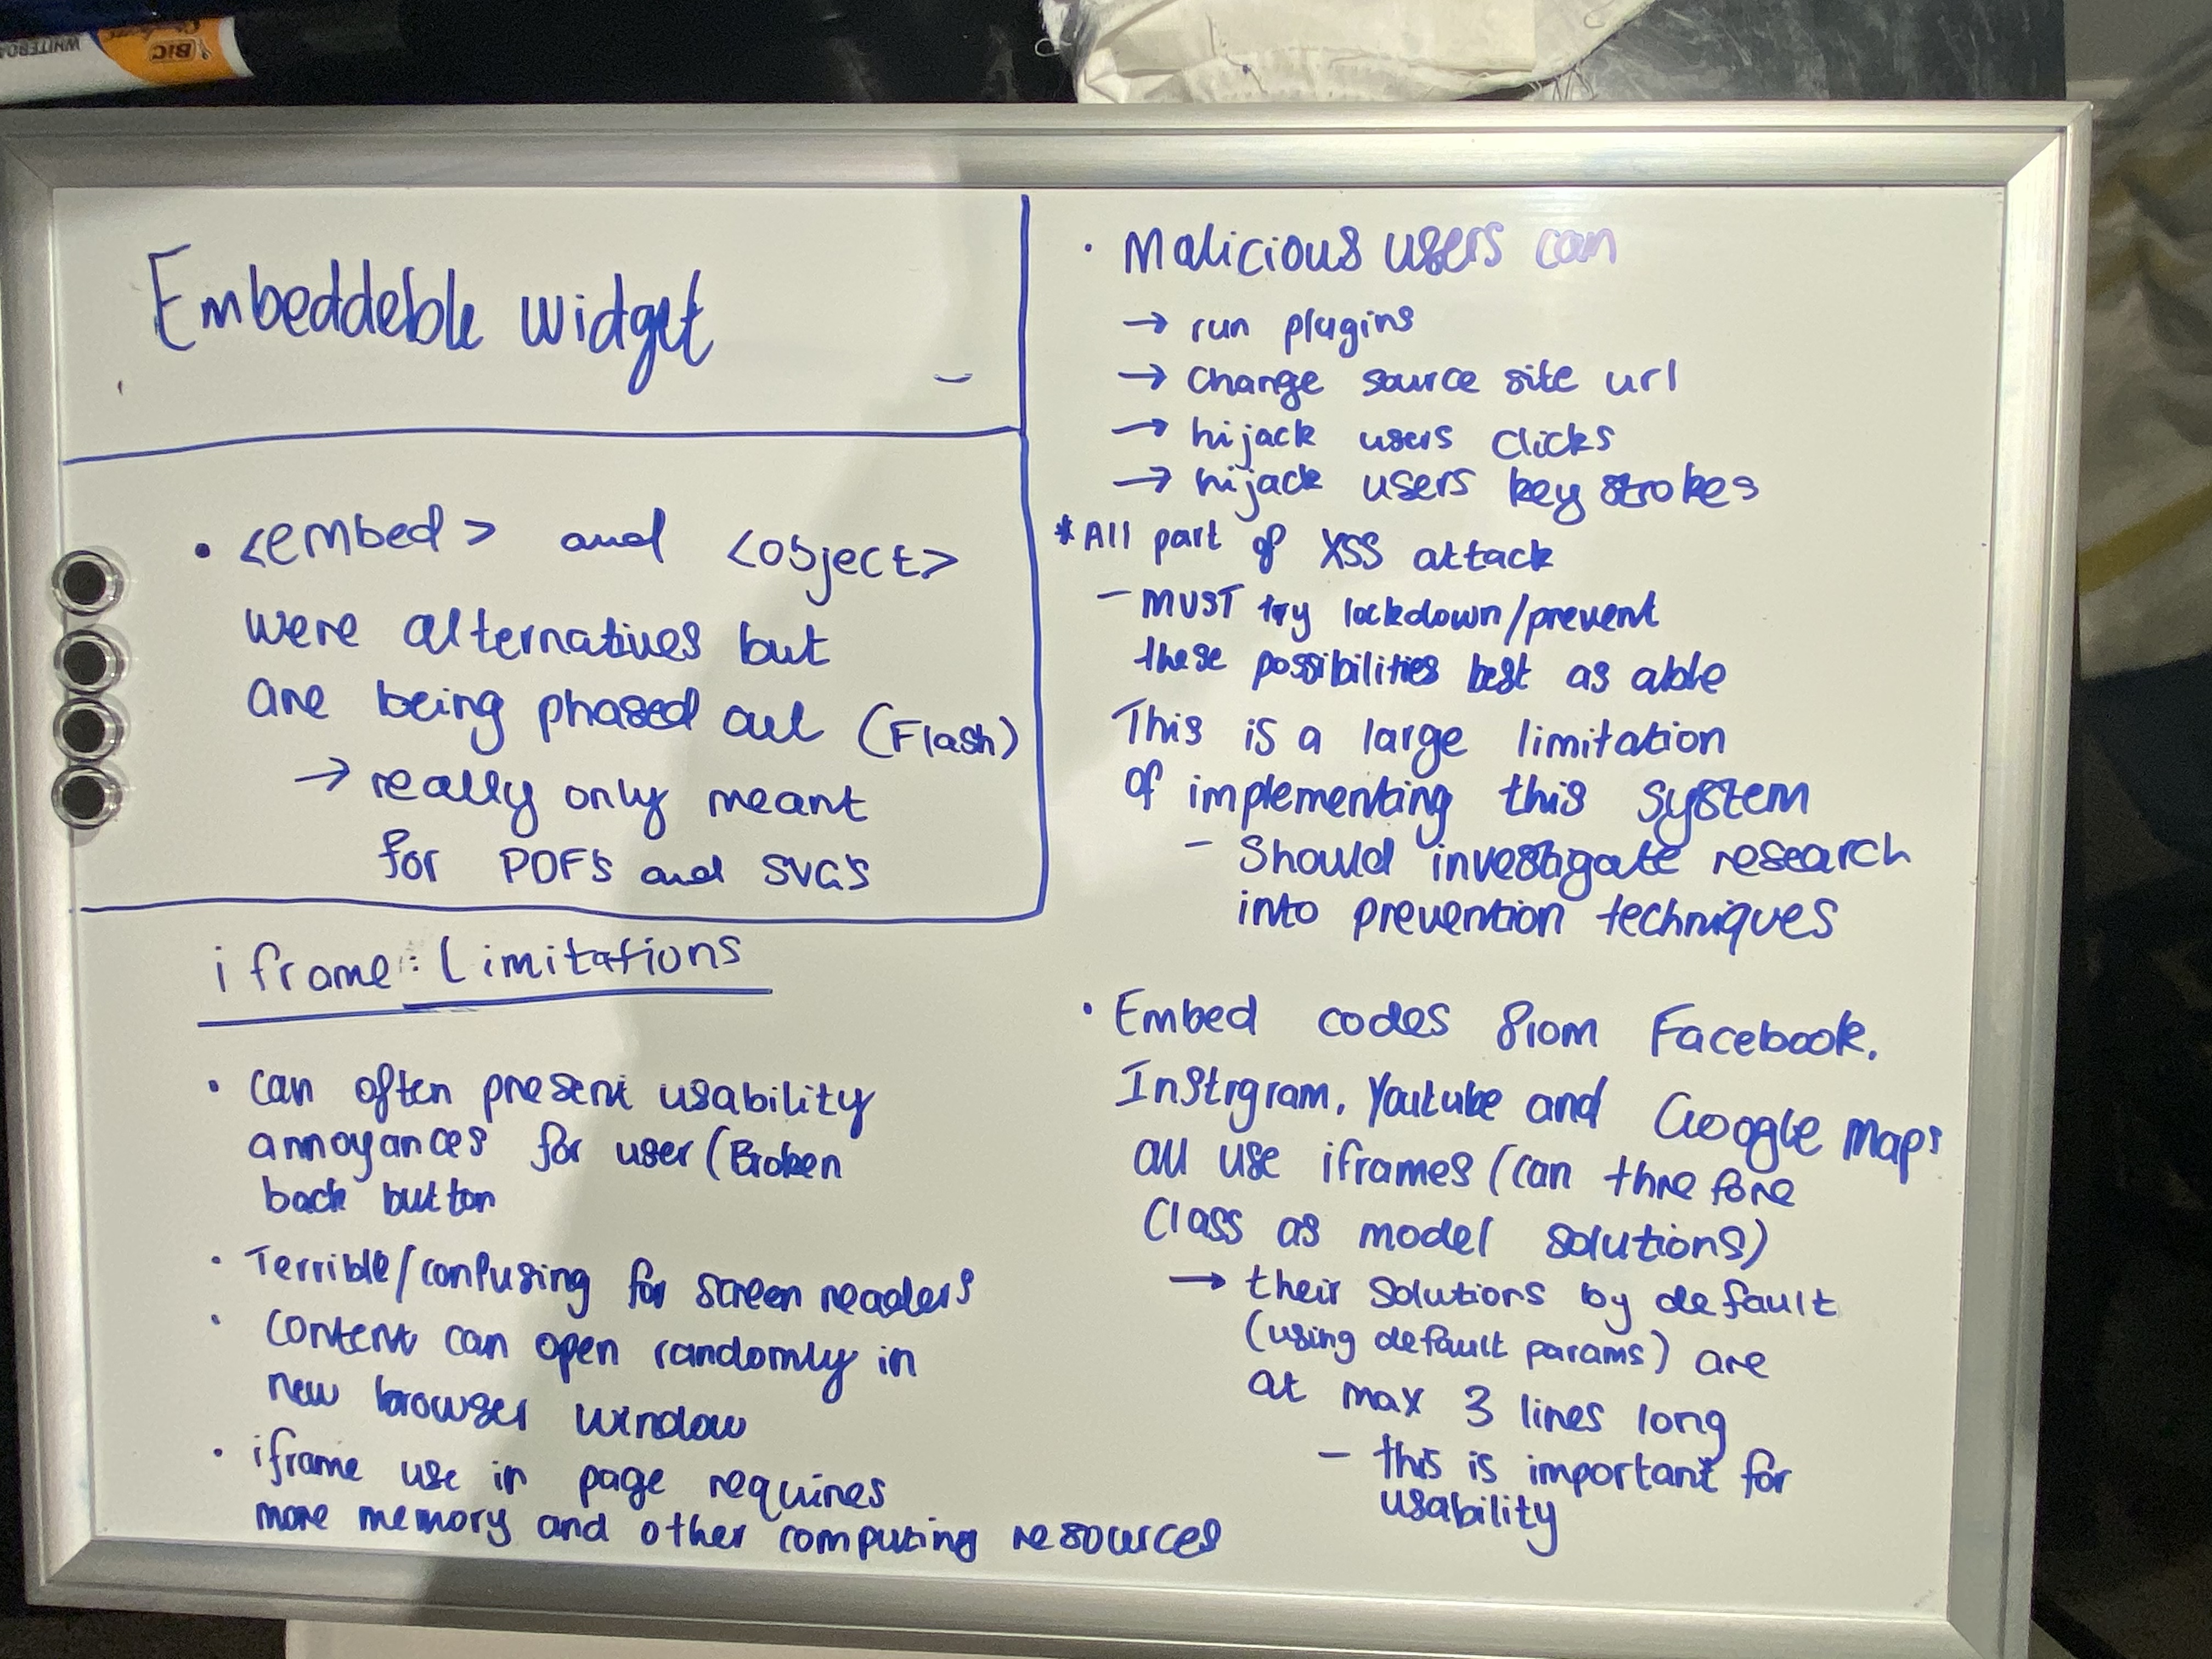 WHITEBO
BIC
Embeddeble widget
• <embed> and <object>
were alternatives but
are being phased out (Flash)
→ really only meant
for PDF's and SVG's
iframe: Limitations
• can often present usability
annoyances for user (Broken
back button
• Terrible/confusing for screen readers
• content can open randomly in
new browser window
• iframe use in page requires
more memory and other computing resources
• Malicious users can
→ run plugins
→ change source site url
→ hijack users clicks
→ hijack users key strokes
* All part of XSS attack
- MUST try lockdown/prevent
these possibilities best as able
This is a large limitation
of implementing this system
- Should investigate research
into prevention techniques
• Embed codes from Facebook,
Instrgram, Youtube and Google Maps
all use iframes (can threfore
class as model solutions)
→ their solutions by default
(using default params) are
at max 3 lines long
- this is important for
usability